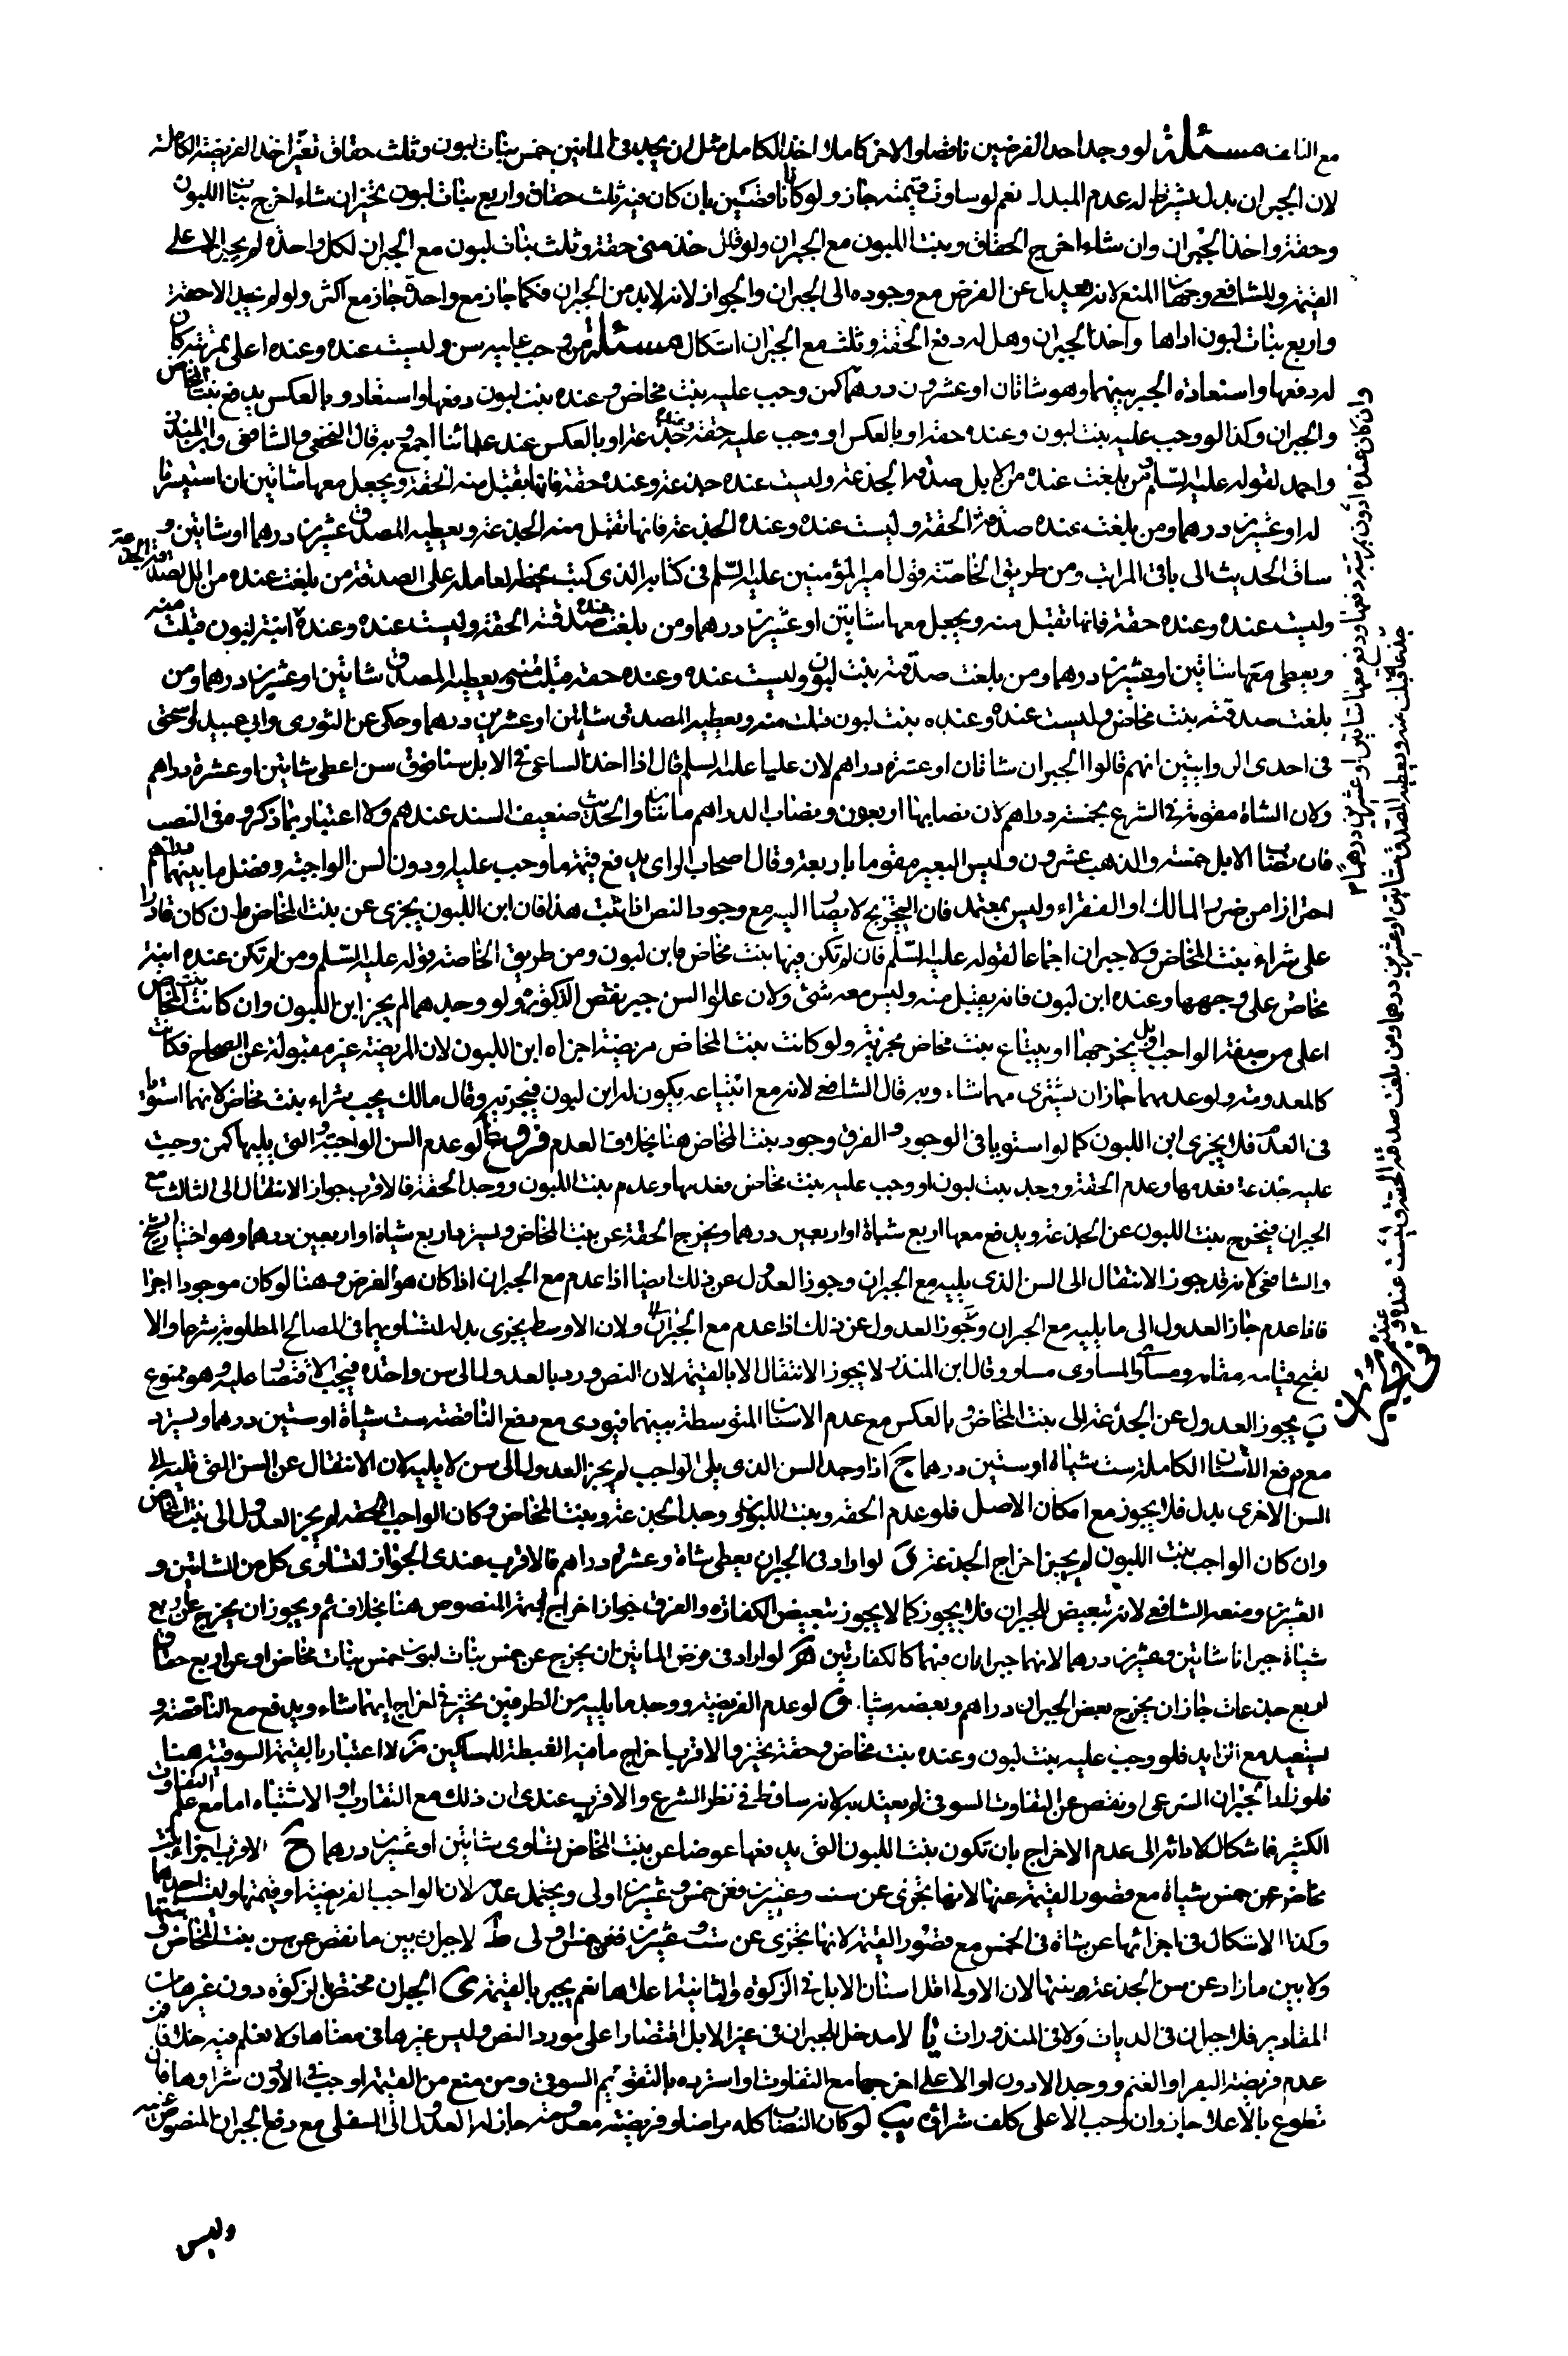 مع النايف مسئلة لو وجد احد الفرضين ناقصا والاخر كاملا اخذ الكامل مثل ان يجد في المائتين خمس بنات لبون وثلث حقاق تعيّن اخذ الفريضة الكاملة
لان الجبران بدل يشترط له عدم المبدل نعم لو ساوت قيمته جاز ولو كانا ناقصتين بان كان فيه ثلث حقاق واربع بنات لبون تخير ان شاء اخرج بنات اللبون
وحقة واخذ الجبران وان شاء اخرج الحقاق وبنت اللبون مع الجبران ولو قال خذ مني حقة وثلث بنات لبون مع الجبران لكل واحدة لم يجز الا على
القيمة وللشافعي وجهان المنع لانه تعديل عن الفرض مع وجوده الى الجبران والجواز لانه لابد من الجبران فكما جاز مع واحدة جاز مع اكثر ولو لم يجد الا حقة
واربع بنات لبون اداها واخذ الجبران وهل له دفع الحقة وثلث مع الجبران اشكال مسئلة من وجب عليه سن وليست عنده وعنده اعلى بمرتبة كان
له دفعها واستعادة الجبر بينهما وهو شاتان او عشرون درهما كمن وجب عليه بنت مخاض وعنده بنت لبون دفعها واستعاد وبالعكس يدفع بنت المخاض
والجبران وكذا لو وجب عليه بنت لبون وعنده حقة او بالعكس او وجب عليه حقة وعنده جذعة او بالعكس عند علمائنا اجمع وبه قال النخعي والشافعي وابن المنذر
واحمد لقوله عليه السّلم ومن بلغت عنده من الابل صدقة الجذعة وليست عنده جذعة وعنده حقة فانها تقبل منه الحقة ويجعل معها شاتين ان استيسرتا
له او عشرين درهما ومن بلغت عنده صدقة الحقة وليست عنده وعنده الجذعة فانها تقبل منه الجذعة ويعطيه المصدق عشرين درهما او شاتين و
ساق الحديث الى باقي المراتب ومن طريق الخاصّة قول امير المؤمنين عليه السّلم في كتابه الذي كتبه بخطه لعامله على الصدقة من بلغت عنده من الابل صدقة الجذعة
وليست عنده وعنده حقة فانها تقبل منه ويجعل معها شاتين او عشرين درهما ومن بلغت عنده صدقة الحقة وليست عنده وعنده ابنة لبون قبلت منه
ويعطي معها شاتين او عشرين درهما ومن بلغت صدقته بنت لبون وليست عنده وعنده حقة قبلت منه ويعطيه المصدق شاتين او عشرين درهما ومن
بلغت صدقته بنت مخاض وليست عنده وعنده بنت لبون قبلت منه ويعطيه المصدق شاتين او عشرين درهما وحكى عن الثوري وابي عبيد واسحق
في احدى الروايتين انهم قالوا الجبران شاتان او عشرة دراهم لان عليا عليه السلم قال اذا اخذ الساعي في الابل سنا فوق سن اعطى شاتين او عشرة دراهم
ولان الشاة مقومة في الشرع بخمسة دراهم لان نصابها اربعون ونصاب الدراهم مائتا والحديث ضعيف السند عندهم ولا اعتبار بما ذكروه في النصب
فان نصاب الابل خمسة والذهب عشرون وليس البعير مقوما باربعة وقال اصحاب الراي يدفع قيمة ما وجب عليه او دون السن الواجبة وفضل ما بينهما دراهم
احترازا من ضرر المالك او الفقراء وليس بمعتمد فان التخريج لا يصار اليه مع وجود النص اذا ثبت هذا فان ابن اللبون يجزى عن بنت المخاض وان كان قادرا
على شراء بنت المخاض ولا جبران اجماعا لقوله عليه السّلم فان لم تكن فيها بنت مخاض فابن لبون ومن طريق الخاصة قوله عليه السّلم ومن لم تكن عنده ابنة
مخاض على وجهها وعنده ابن لبون فانه يقبل منه وليس معه شئ ولان علو السن جبر نقص الذكورة ولو وجدهما لم يجز ابن اللبون وان كانت بنت المخاض
اعلى من صفة الواجب بل يخرجها او يبتاع بنت مخاض مجزية ولو كانت بنت المخاض مريضة اجزاه ابن اللبون لان المريضة غير مقبولة عن الصحاح فكانت
كالمعدومة ولو عدمهما جاز ان يشتري مهما شاء وبه قال الشافعي لانه مع ابتياعه يكون له ابن لبون فيجزيه وقال مالك يجب شراء بنت مخاض لانهما استويا
في العدم فلا يجزى ابن اللبون كما لو استويا في الوجود والفرق وجود بنت المخاض هنا بخلاف العدم فروع آ لو عدم السن الواجبة والتي يليها كمن وجبت
عليه جذعة فعدمها وعدم الحقة ووجد بنت لبون او وجب عليه بنت مخاض فعدمها وعدم بنت اللبون ووجد الحقة فالاقرب جواز الانتقال الى الثالث مع
الجبران فيخرج بنت اللبون عن الجذعة ويدفع معها اربع شياة او اربعين درهما ويخرج الحقة عن بنت المخاض ويسترد اربع شياة او اربعين درهما وهو اختيار الشيخ
والشافعي لانه قد جوز الانتقال الى السن الذي يليه مع الجبران وجوز العدول عن ذلك ايضا اذا عدم مع الجبران اذا كان هو الفرض وهنا لو كان موجودا اجزأ
فاذا عدم جاز العدول الى ما يليه مع الجبران وتجوز العدول عن ذلك اذا عدم مع الجبران ولان الاوسط يجزى بدله لتساويهما في المصالح المطلوبة شرعا والا
لقبح قيامه مقامه ومساوي المساوى مساو وقال ابن المنذر لا يجوز الانتقال الا بالقيمة لان النص ورد بالعدول الى سن واحدة فيجب الاقتصار عليه وهو ممنوع
بَ يجوز العدول عن الجذعة الى بنت المخاض وبالعكس مع عدم الاسنان المتوسطة بينهما فيودى مع دفع الناقصة ست شياة او ستين درهما ويسترد
مع دفع الاسنان الكاملة ست شياة او ستين درهما جَ اذا وجد السن الذي يلى الواجب لم يجز العدول الى سن لا يليه لان الانتقال عن السن التي تليه الى
السن الاخرى بدل فلا يجوز مع امكان الاصل فلو عدم الحقة وبنت اللبون ووجد الجذعة وبنت المخاض وكان الواجب الحقة لم يجز العدول الى بنت المخاض
وان كان الواجب بنت اللبون لم يجز اخراج الجذعة دَ لو اراد في الجبران يعطى شاة وعشرة دراهم فالاقرب عندي الجواز لتساوى كل من الشاتين و
العشرين ومنعه الشافعي لانه تبعيض للجبران فلا يجوز كما لا يجوز تبعيض الكفارة والفرق جواز اخراج قيمة المنصوص هنا بخلاف ثم ويجوز ان يخرج عن اربع
شياة جبرانا شاتين وعشرين درهما لانهما جبرانان فهما كالكفارتين هَ لو اراد في فرض المائتين ان يخرج عن خمس بنات لبون خمس بنات مخاض او عن اربع حقاق
اربع جذعات جاز ان يخرج بعض الجبران دراهم وبعضه شياة وَ لو عدم الفريضة ووجد ما يليه من الطرفين تخير في اخراج ايهما شاء ويدفع مع الناقصة و
يستعيد مع الزايد فلو وجبت عليه بنت لبون وعنده بنت مخاض وحقة تخير والاقرب اخراج ما فيه الغبطة للمساكين زَ لا اعتبار بالقيمة السوقية هنا
فلو زاد الجبران الشرعي او نقص عن التفاوت السوقي لم يعتد به لانه ساقط في نظر الشرع والاقرب عندي ان ذلك مع التقارب او الاشتباه اما مع علم التفاوت
الكثير فاشكال لادائه الى عدم الاخراج بان تكون بنت اللبون التي يدفعها عوضا عن بنت المخاض تساوى شاتين او عشرين درهما حَ الاقرب اجزاء بنت
مخاض عن خمس شياة مع قصور القيمة عنها لانها تجزى عن ست وعشرين فعن خمس وعشرين اولى ويحتمل عدمه لان الواجب الفريضة او قيمتها وليست احدهما
وكذا الاشكال في اجزائها عن شاة في الخمس مع قصور القيمة لانها تجزى عن ست وعشرين فعن خمس اولى طَ لا جبران بين ما نقص عن سن بنت المخاض وبينها
ولا بين ما زاد عن سن الجذعة وبينها لان الاولى اقل اسنان الابل في الزكوة والثانية اعلاها نعم يجبر بالقيمة يَ الجبران مختص بالزكوة دون غيرها من
المقادير فلا جبران في الديات ولا في المنذورات يا لا مدخل للجبران في غير الابل اقتصارا على مورد النص وليس غيرها في معناها ولا نعلم فيه خلافا فمن
عدم فريضة البقر او الغنم ووجد الادون او الاعلى اخرجها مع التفاوت او استرده بالتقويم السوقي ومن منع من القيمة اوجب في الادون شراءها فان
تطوع بالاعلا جاز وان وجب الاعلى كلف شراءه يب لو كان النصاب كله مراضا وفريضته معدومة جاز له العدول الى السفلى مع دفع الجبران المنصوص عنه
وليس
وان كان عنده أدون بمرتبة دفعها ودفع معها شاتين او عشرين درهما